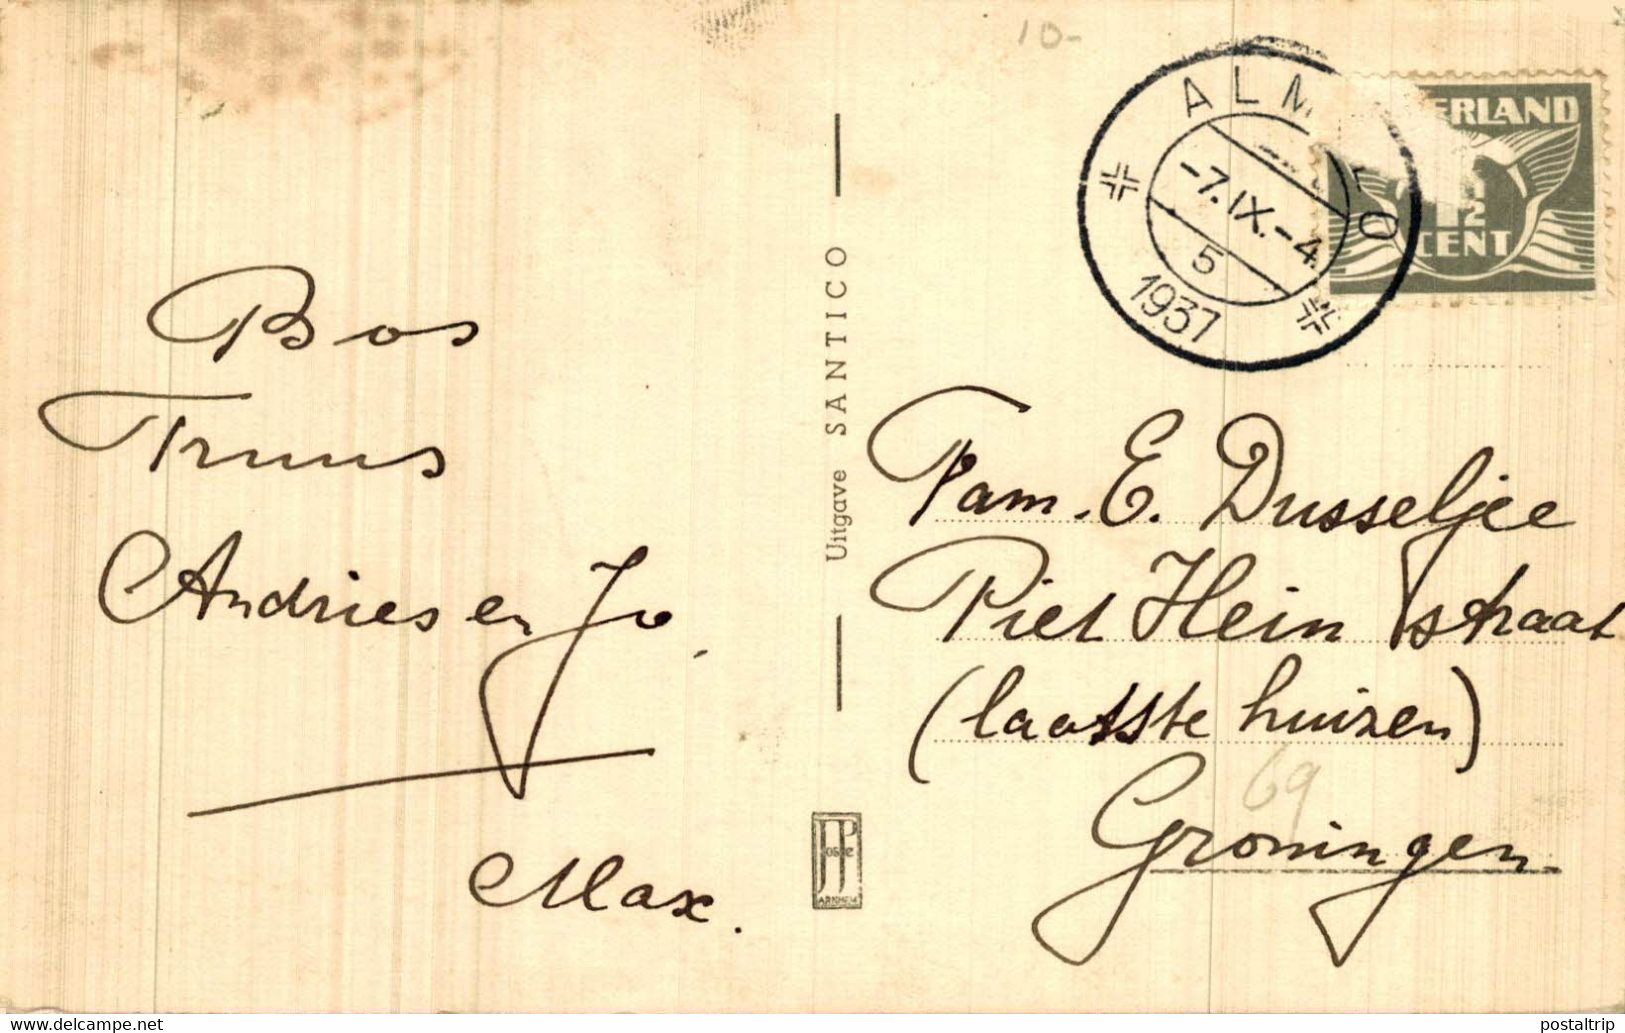 10-
ALM LO
-7.IX.-4.
5
1937
ERLAND
1½
CENT
Bos
Truus
Andries en Jo.
Max.
Uitgave SANTICO
JosPe
ARNHEM
Fam. E. Dusseljee
Piet Hein straat
(laatste huizen)
69
Groningen.
www.delcampe.net
postaltrip